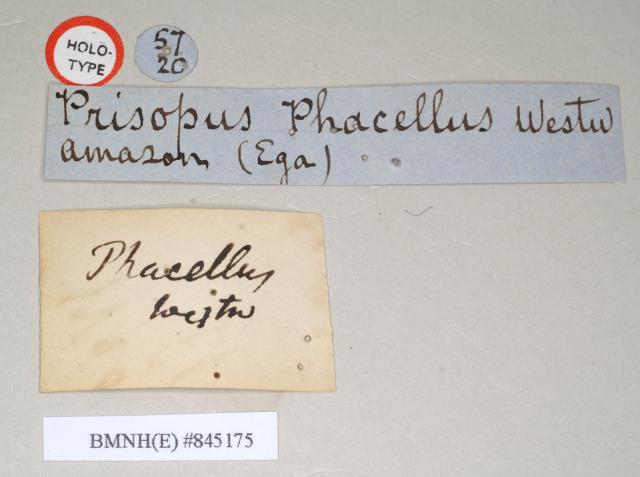 HOLO-
TYPE
57
20
Prisopus Phacellus Westw
amazon (Ega)
Phacellus
westw
BMNH(E) #845175